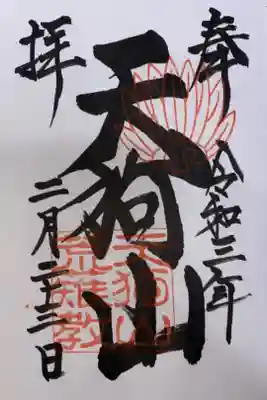 奉
令和三年
天狗山
拝
二月二十三日
天狗山